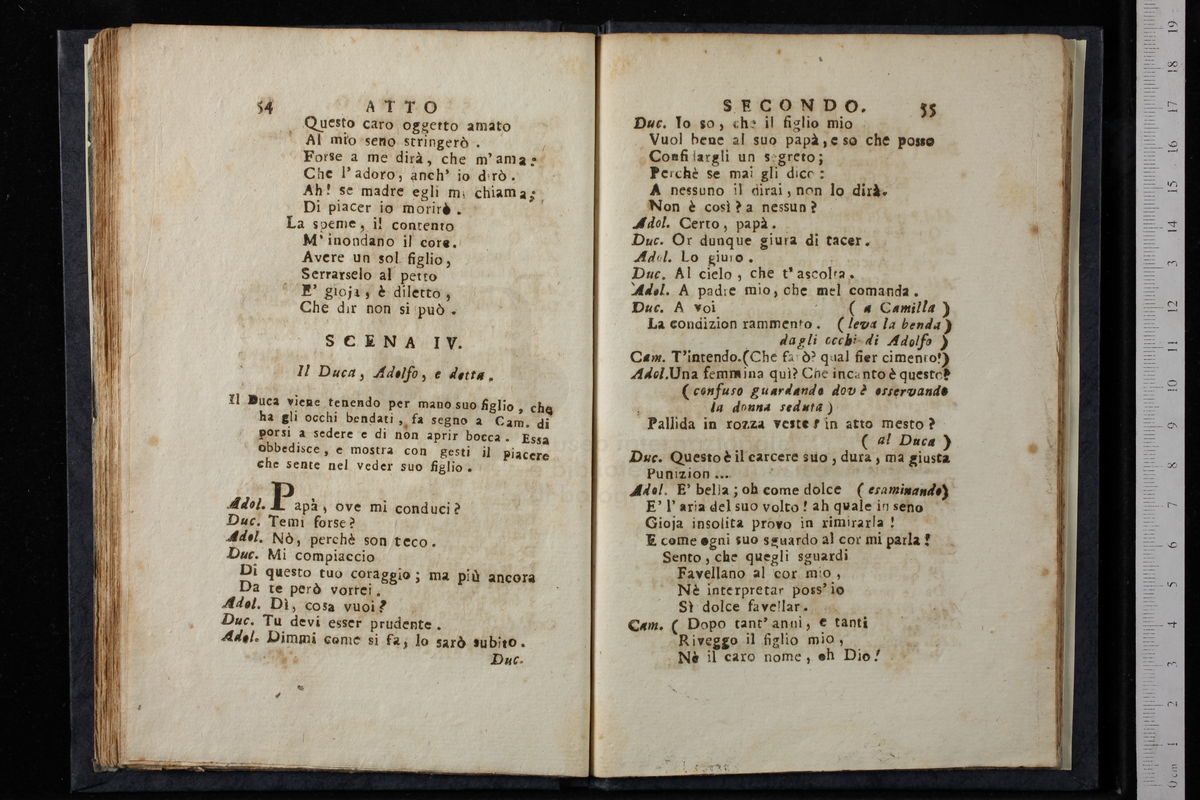 54 ATTO
Questo caro oggetto amato
Al mio seno stringerò .
Forse a me dirà, che m'ama:
Che l'adoro, anch' io dirò .
Ah! se madre egli mi chiama;
Di piacer io morirò .
La speme, il contento
M'inondano il core.
Avere un sol figlio,
Serrarselo al petto
E' gioja, è diletto,
Che dir non si può .
SCENA IV.
Il Duca, Adolfo, e detta.
Il Duca viene tenendo per mano suo figlio, che
ha gli occhi bendati, fa segno a Cam. di
porsi a sedere e di non aprir bocca. Essa
obbedisce, e mostra con gesti il piacere
che sente nel veder suo figlio.
Adol. Papà, ove mi conduci?
Duc. Temi forse?
Adol. Nò, perchè son teco.
Duc. Mi compiaccio
Di questo tuo coraggio; ma più ancora
Da te però vorrei.
Adol. Dì, cosa vuoi?
Duc. Tu devi esser prudente.
Adol. Dimmi come si fa, lo sarò subito.
Duc.
SECONDO. 55
Duc. Io so, che il figlio mio
Vuol bene al suo papà, e so che posso
Confidargli un segreto;
Perchè se mai gli dico:
A nessuno il dirai, non lo dirà.
Non è così? a nessun?
Adol. Certo, papà.
Duc. Or dunque giura di tacer.
Adol. Lo giuro.
Duc. Al cielo, che t'ascolta.
Adol. A padre mio, che mel comanda.
Duc. A voi ( a Camilla )
La condizion rammento. ( leva la benda )
dagli occhi di Adolfo )
Cam. T'intendo.(Che farò? qual fier cimento!)
Adol.Una femmina quì? Che incanto è questo?
( confuso guardando dov'è osservando
la donna seduta )
Pallida in rozza veste? in atto mesto?
( al Duca )
Duc. Questo è il carcere suo, dura, ma giusta
Punizion ...
Adol. E' bella; oh come dolce ( esaminando)
E' l'aria del suo volto! ah quale in seno
Gioja insolita provo in rimirarla!
E come ogni suo sguardo al cor mi parla!
Sento, che quegli sguardi
Favellano al cor mio,
Nè interpretar poss'io
Sì dolce favellar.
Cam. ( Dopo tant' anni, e tanti
Riveggo il figlio mio,
Nè il caro nome, oh Dio!